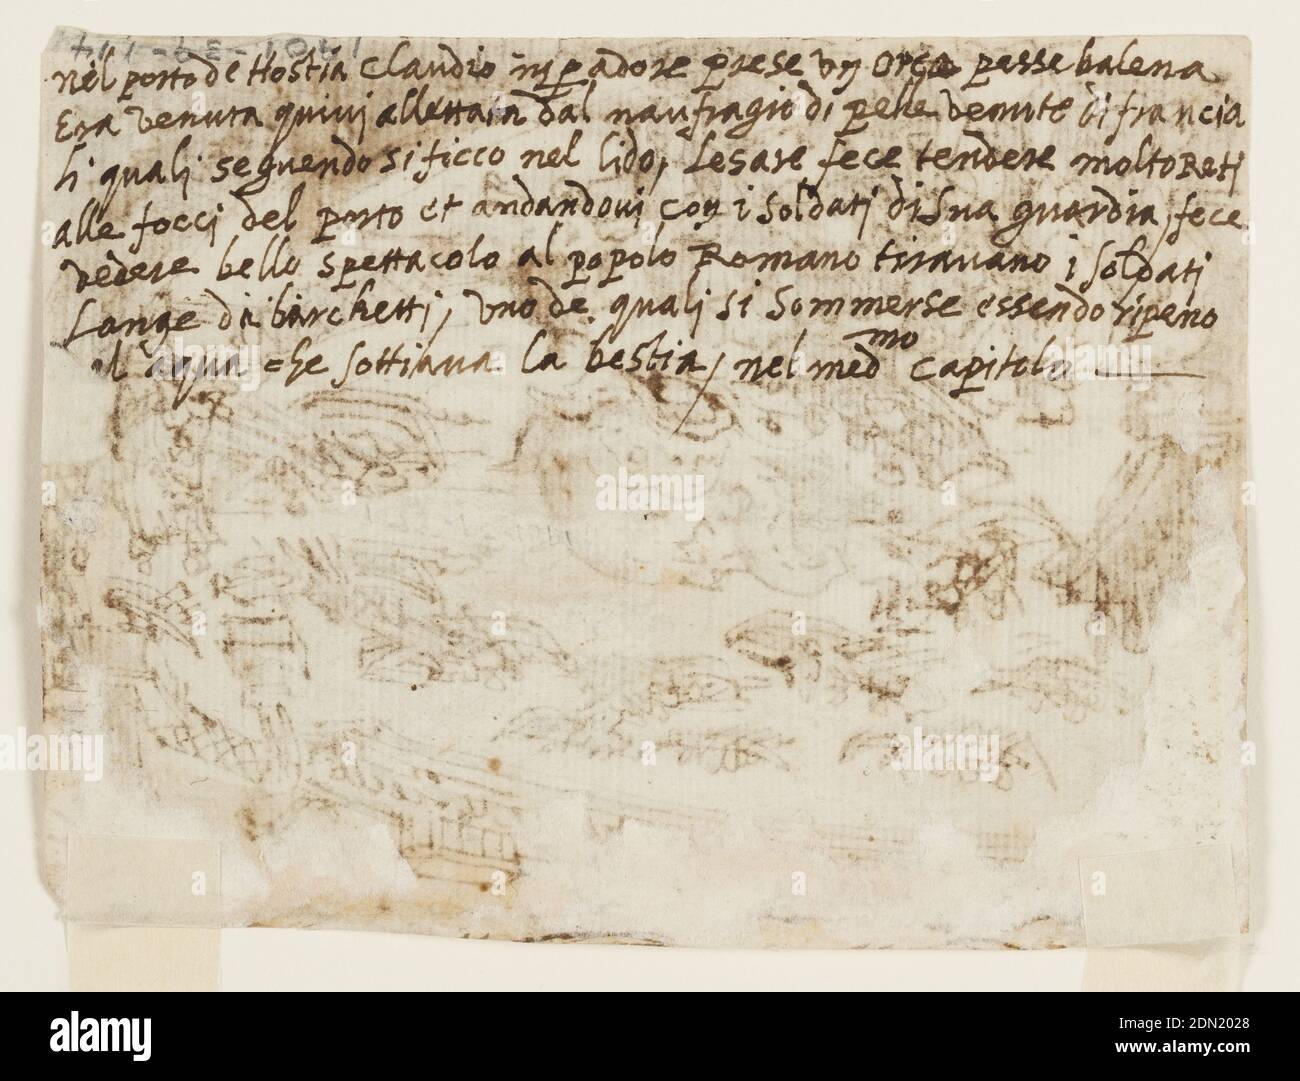 1901-39-114
nel porto de Hostia Claudio inperadore prese un Orca pesse balena
Era venuta quivi allettata dal naufragio di pelle venute di francia
li quali seguendo si ficco nel lido, Cesare fece tendere molto Reti
alle focci del porto et andandovi con i soldati di sua guardia, fece
vedere bello spettacolo al popolo Romano tiravano i soldati
Lange da barchetti, uno de quali si sommerse essendo ripeno
d aqua che soffiava la bestia, nel medmo capitolo
alamy
Image ID: 2DN2028
www.alamy.com